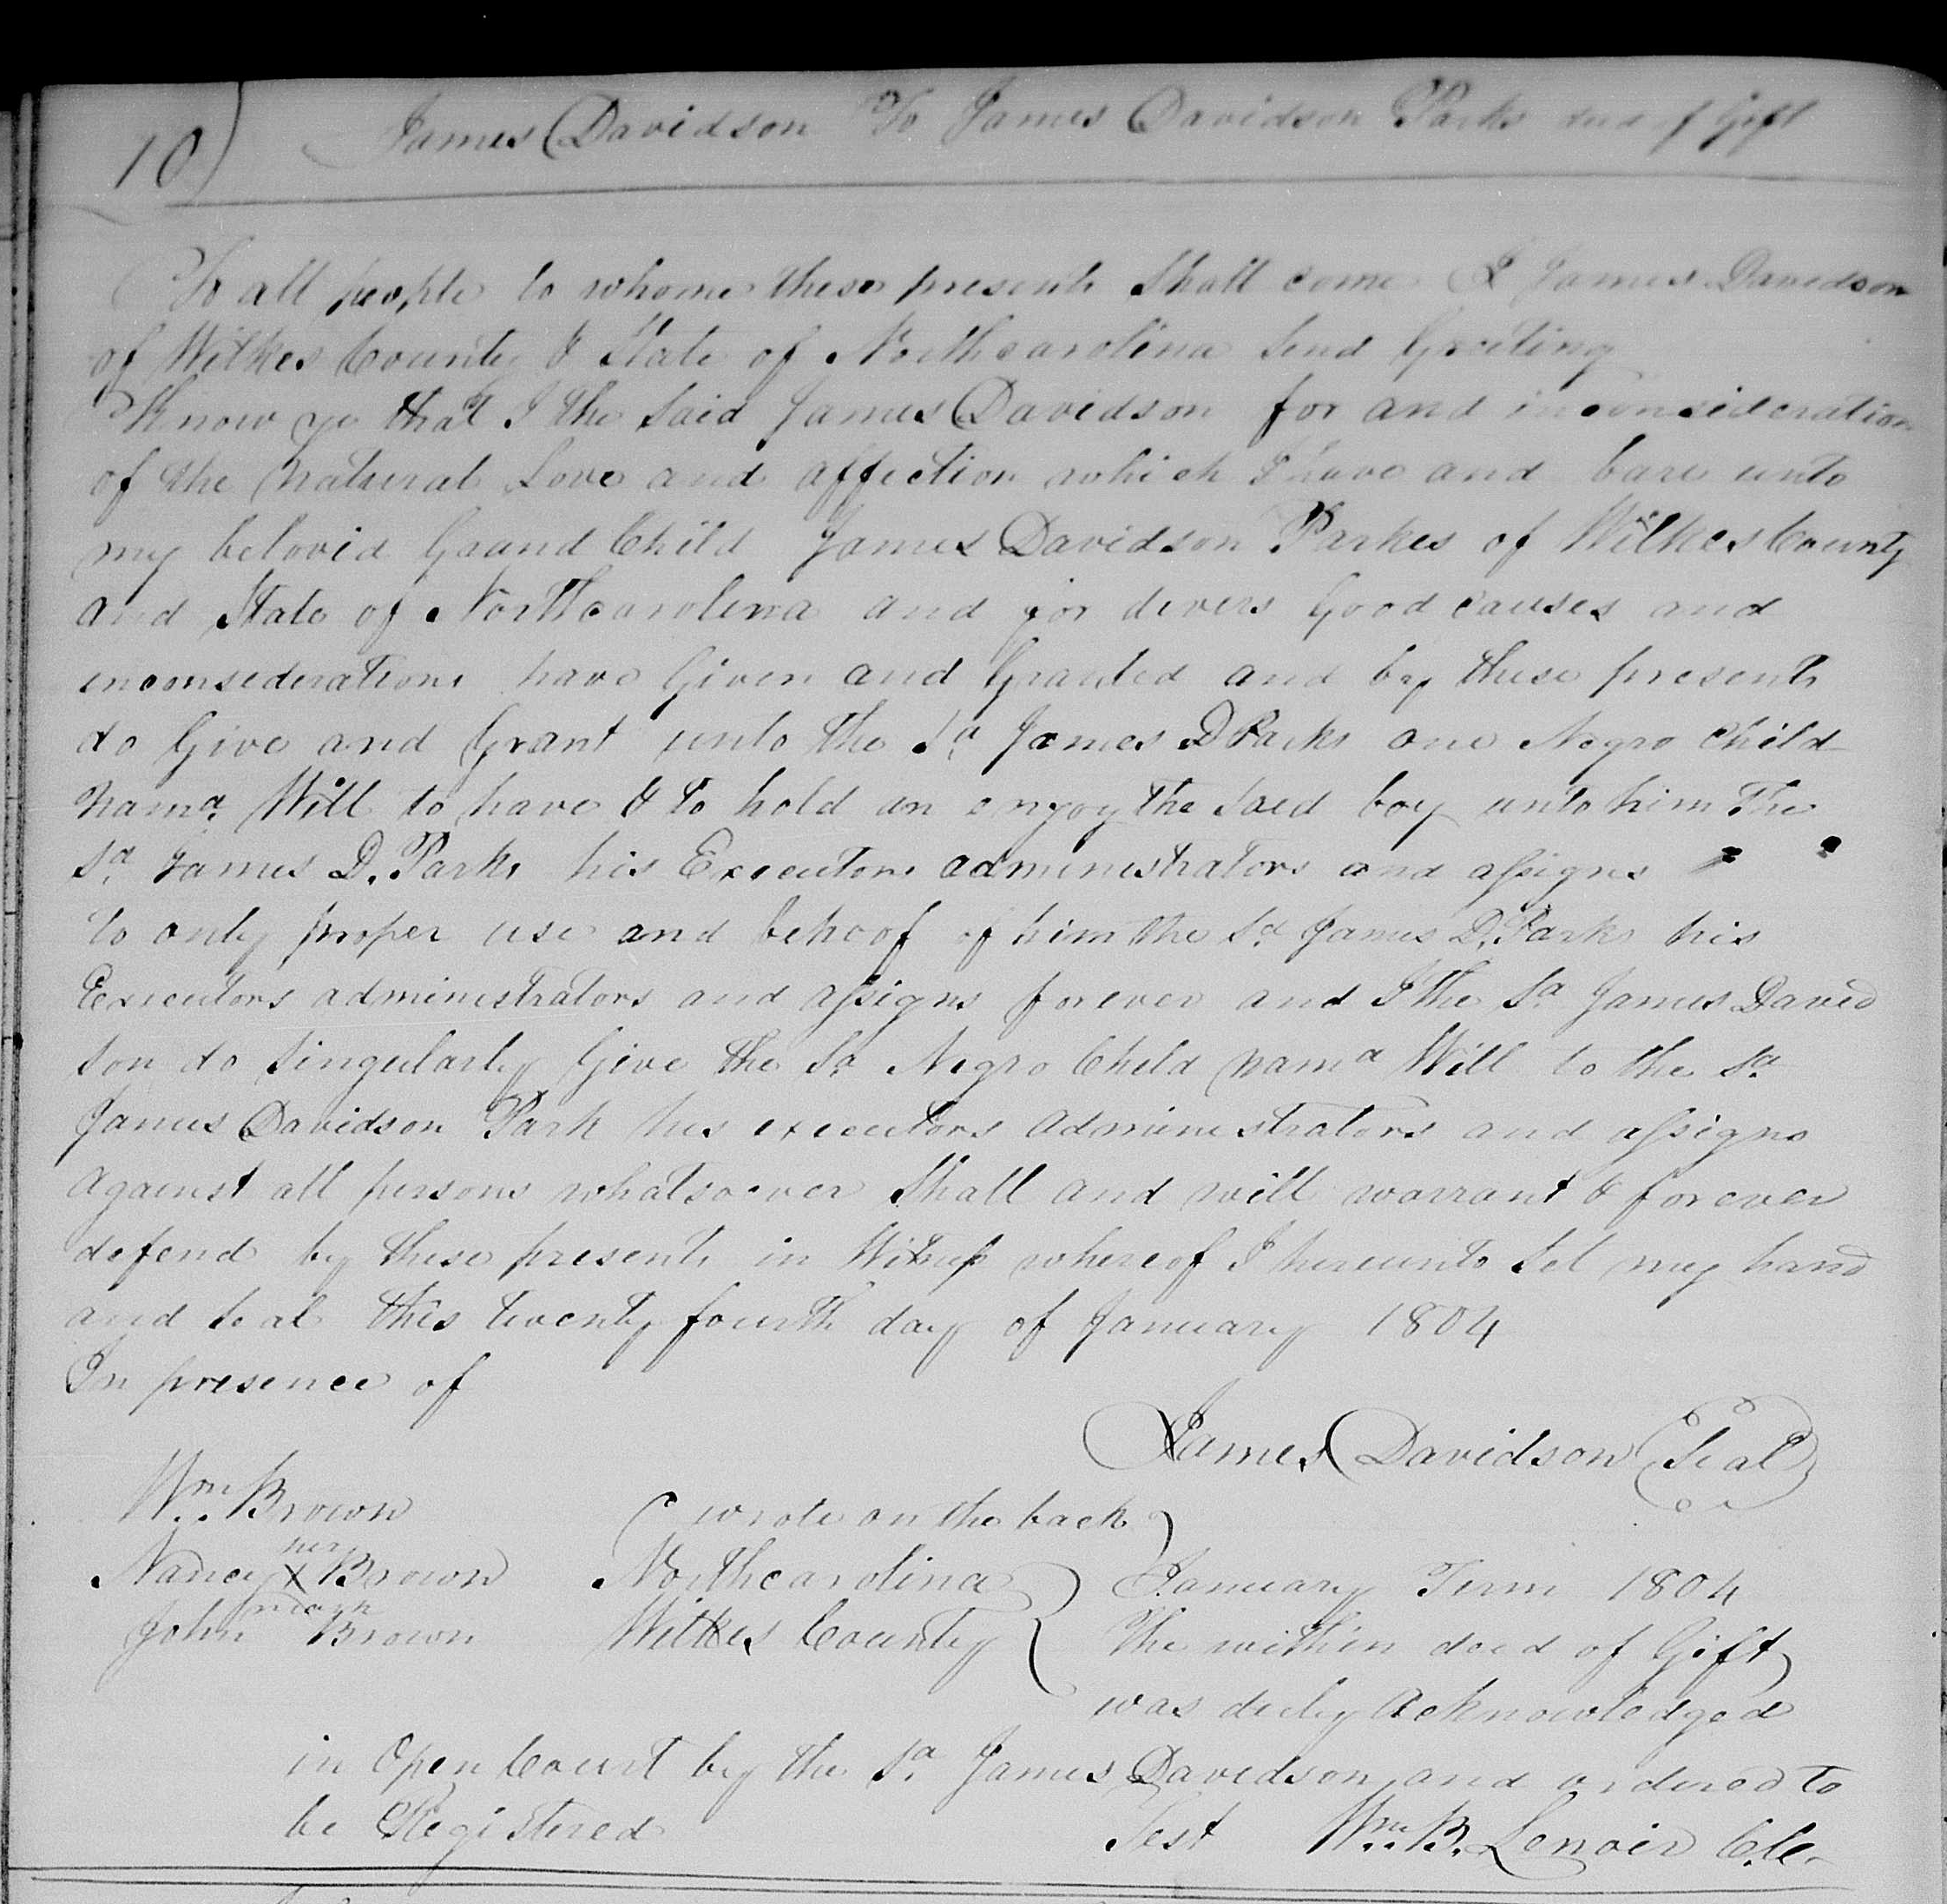 10) James Davidson To James Davidson Parks deed of Gift
To all people to whome these presents Shall come I James Davidson
of Wilkes County & State of Northcarolina Send Greeting
Know ye that I the Said James Davidson for and inconsideration
of the natural Love and affection which I have and bare unto
my belovid Grand Child James Davidson Parkes of Wilkes County
and State of Northcarolina and for divers Good causes and
inconsiderations have Given and Granted and by these presents
do Give and Grant unto the Sd James D Parks one Negro Child
Namd Will to have & to hold an enjoy the Said boy unto him The
Sd James D. Parks his Executors administrators and assigns
to only proper use and behoof of him the Sd James D. Parks his
Executors administrators and assigns forever and I the Sd James David
son do Singularly Give the Sd Negro Child namd Will to the Sd
James Davidson Park his executors administrators and assigns
against all persons whatsoever Shall and will warrant & forever
defend by these presents in Witness whereof I hereunto Set my hand
and Seal this twenty fourth day of January 1804
In presence of
James Davidson (Seal)
Wm. Brown
(wrote on the back)
her
Nancy X Brown
mark
John Brown
Northcarolina
Wilkes County
January Term 1804
The within deed of Gift
was duly acknowledged
in Open Court by the Sd James Davidson and ordered to
be Registered
Test Wm. B. Lenoir